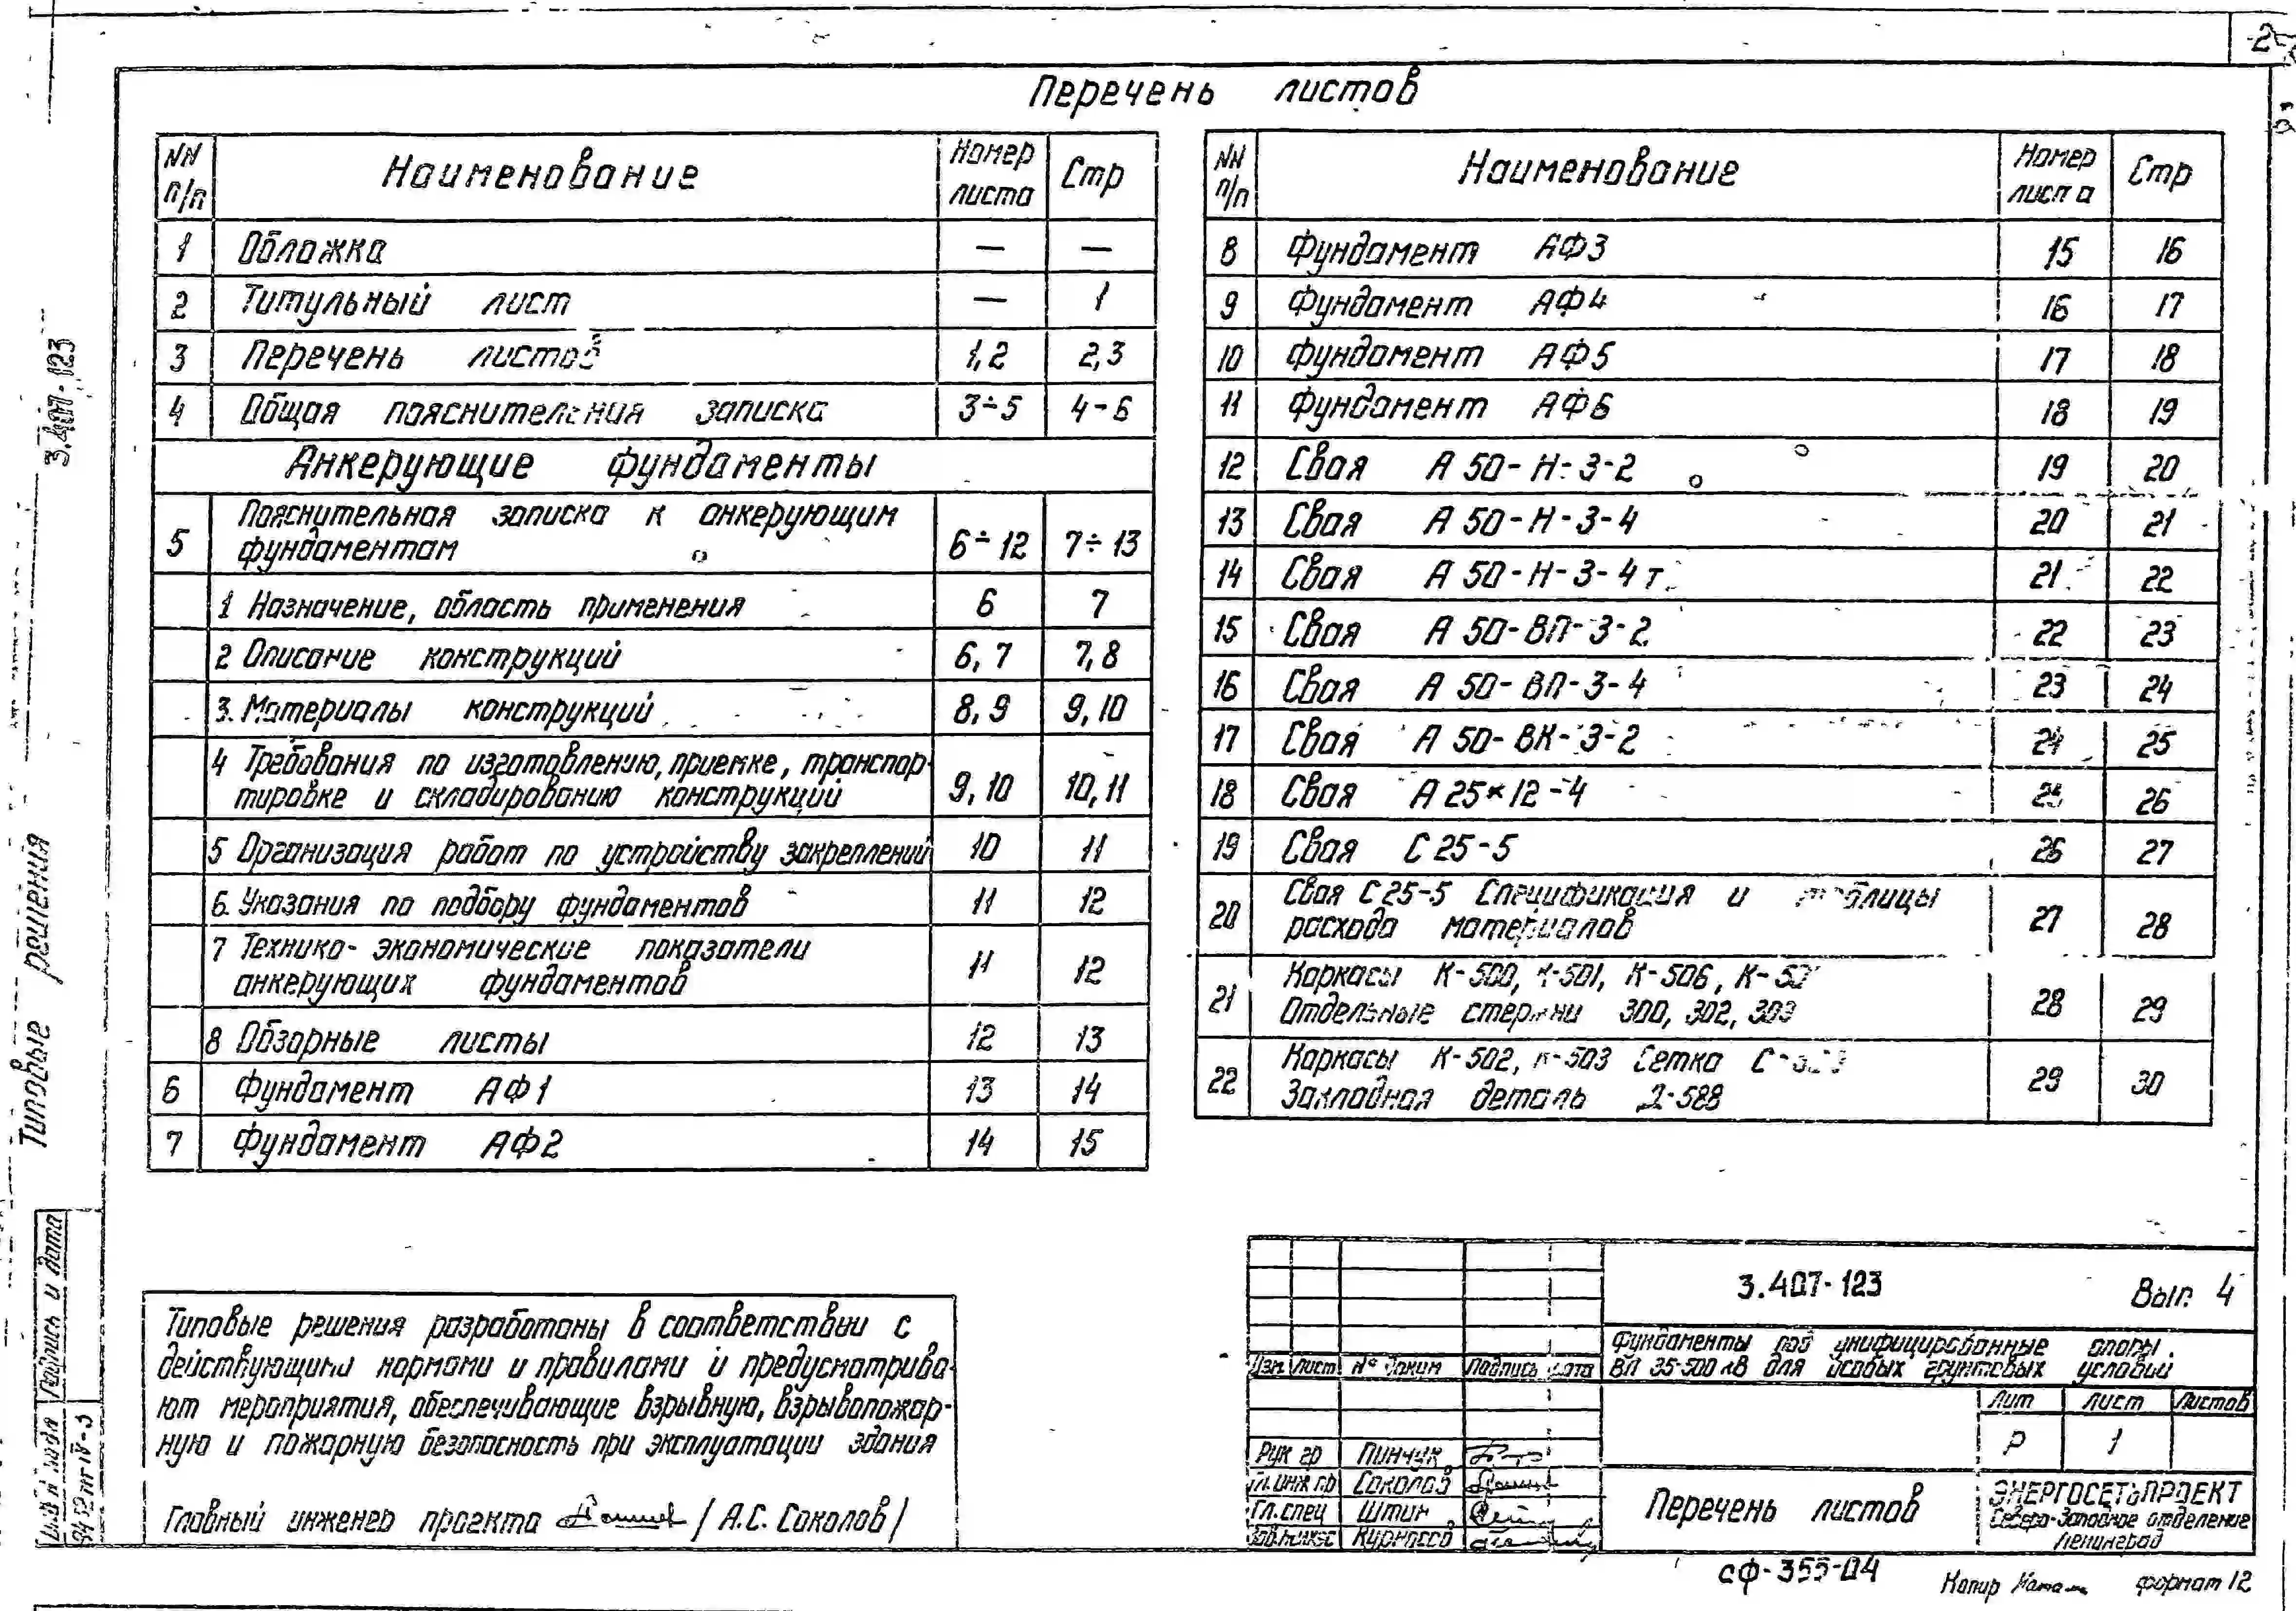 2
Перечень листов
NN п/п Наименование Номер листа Стр
1 Обложка — —
2 Титульный лист — 1
3 Перечень листов 1,2 2,3
4 Общая пояснительная записка 3÷5 4-6
Анкерующие фундаменты
5 Пояснительная записка к анкерующим
фундаментам 6÷12 7÷13
1 Назначение, область применения 6 7
2 Описание конструкций 6,7 7,8
3. Материалы конструкций 8,9 9,10
4 Требования по изготовлению, приемке, транспор-
тировке и складированию конструкций 9,10 10,11
5 Организация работ по устройству закреплений 10 11
6. Указания по подбору фундаментов 11 12
7 Технико-экономические показатели
анкерующих фундаментов 11 12
8 Обзорные листы 12 13
6 Фундамент АФ1 13 14
7 Фундамент АФ2 14 15
NN п/п Наименование Номер листа Стр
8 Фундамент АФ3 15 16
9 Фундамент АФ4 16 17
10 Фундамент АФ5 17 18
11 Фундамент АФ6 18 19
12 Свая А 50-Н-3-2 19 20
13 Свая А 50-Н-3-4 20 21
14 Свая А 50-Н-3-4т 21 22
15 Свая А 50-ВП-3-2 22 23
16 Свая А 50-ВП-3-4 23 24
17 Свая А 50-ВК-3-2 24 25
18 Свая А 25×12-4 25 26
19 Свая С 25-5 26 27
20 Свая С 25-5 Спецификация и таблицы
расхода материалов 27 28
21 Каркасы К-500, К-501, К-506,
Отдельные стержни 300, 302, 303 28 29
22 Каркасы К-502, К-503 Сетка
Закладная деталь Д-588 29 30
Типовые решения 3.407-123
Подпись и дата
Типовые решения разработаны в соответствии с
действующими нормами и правилами и предусматрива-
ют мероприятия, обеспечивающие взрывную, взрывопожар-
ную и пожарную безопасность при эксплуатации здания
Главный инженер проекта /А.С. Соколов/
3.407-123 Вып. 4
Фундаменты под унифицированные опоры
ВЛ 35-500 кВ для особых грунтовых условий
Изм. Лист № докум Подпись Дата
Лит Лист Листов
Р 1
Рук гр Пинчук
Гл. инж пр Соколов
Гл. спец Штин
Перечень листов
ЭНЕРГОСЕТЬПРОЕКТ
Северо-Западное отделение
Ленинград
сф-355-04
Копир формат 12